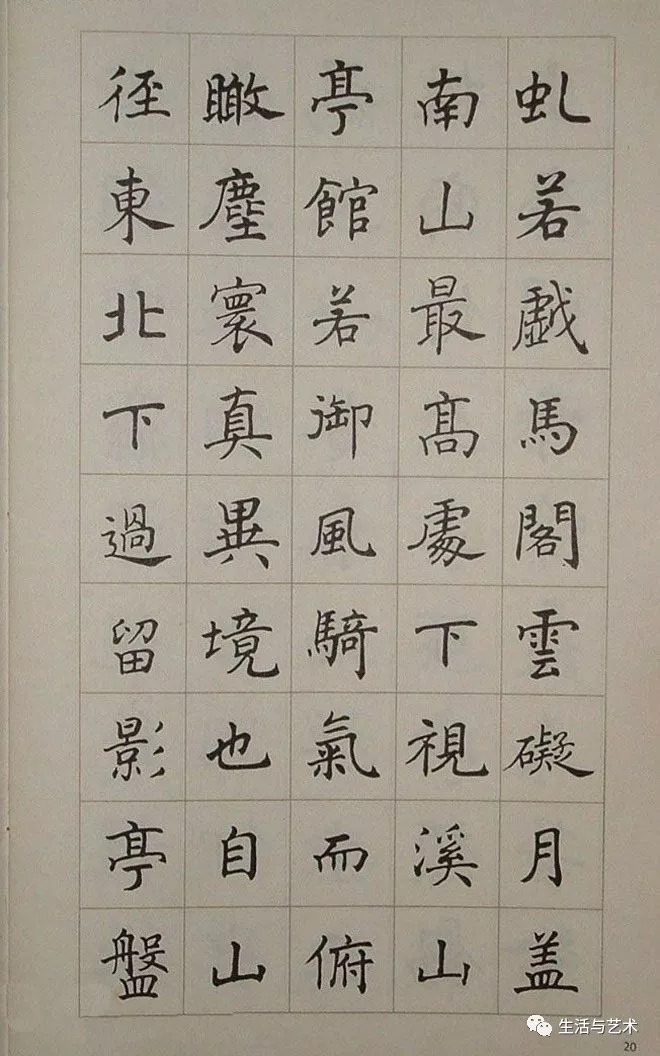 虬若戯馬閣雲礙月盖
南山最髙處下視溪山
亭館若御風騎氣而俯
瞰塵寰真異境也自山
徑東北下過留影亭盤
生活与艺术
20